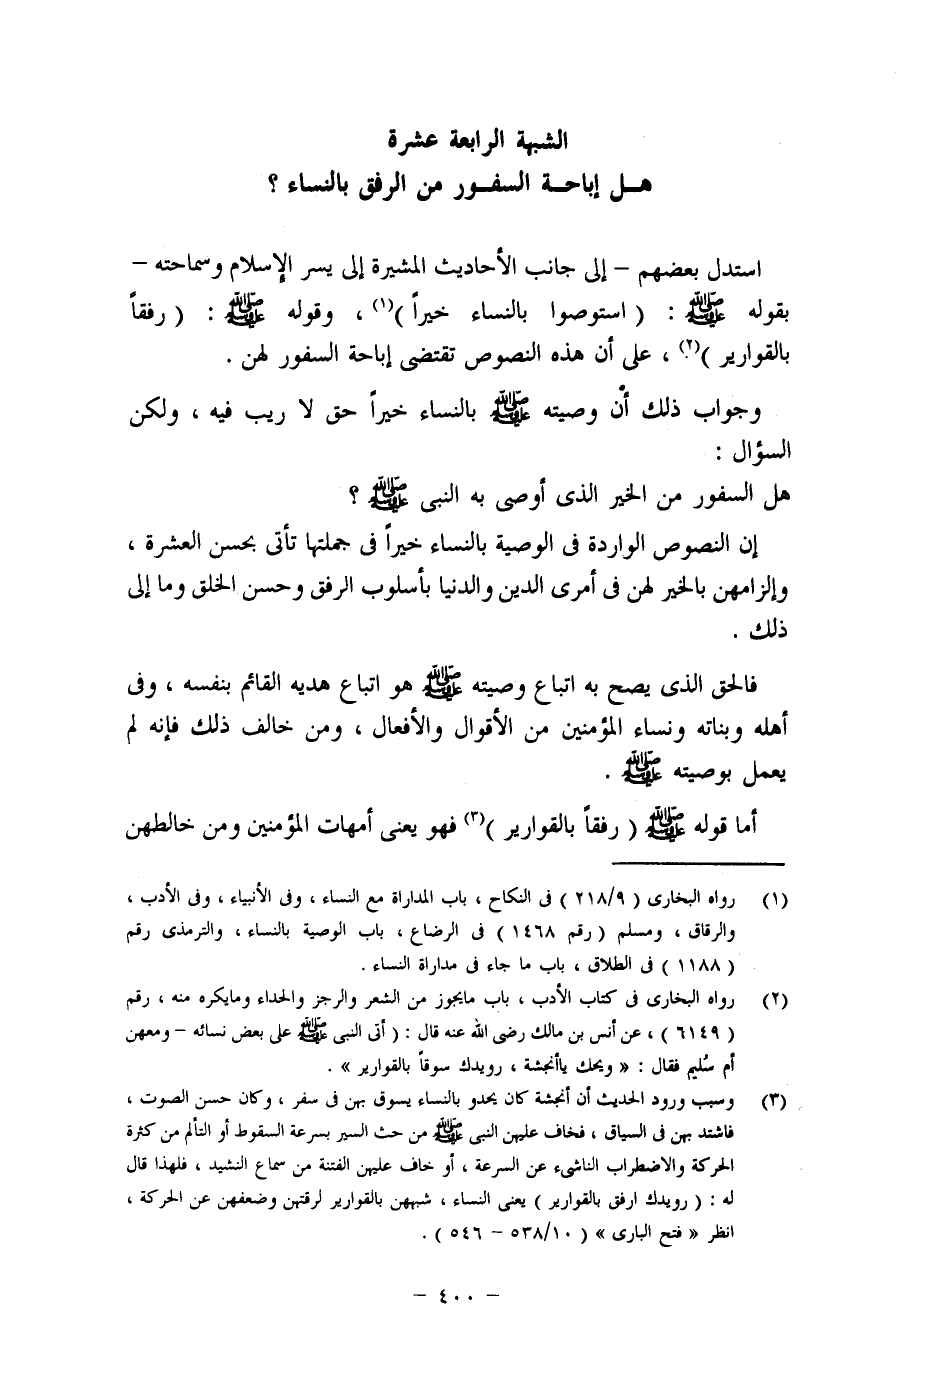 الشبهة الرابعة عشرة
هـل إباحـة السفـور من الرفق بالنساء ؟
استدل بعضهم – إلى جانب الأحاديث المشيرة إلى يسر الإسلام وسماحته –
بقوله ﷺ : ( استوصوا بالنساء خيراً )(١) ، وقوله ﷺ : ( رفقاً
بالقوارير )(٢) ، على أن هذه النصوص تقتضى إباحة السفور لهن .
وجواب ذلك أن وصيته ﷺ بالنساء خيراً حق لا ريب فيه ، ولكن
السؤال :
هل السفور من الخير الذى أوصى به النبى ﷺ ؟
إن النصوص الواردة فى الوصية بالنساء خيراً فى جملتها تأتى بحسن العشرة ،
وإلزامهن بالخير لهن فى أمرى الدين والدنيا بأسلوب الرفق وحسن الخلق وما إلى
ذلك .
فالحق الذى يصح به اتباع وصيته ﷺ هو اتباع هديه القائم بنفسه ، وفى
أهله وبناته ونساء المؤمنين من الأقوال والأفعال ، ومن خالف ذلك فإنه لم
يعمل بوصيته ﷺ .
أما قوله ﷺ ( رفقاً بالقوارير )(٣) فهو يعنى أمهات المؤمنين ومن خالطهن
(١) رواه البخارى ( ٢١٨/٩ ) فى النكاح ، باب المداراة مع النساء ، وفى الأنبياء ، وفى الأدب ،
والرقاق ، ومسلم ( رقم ١٤٦٨ ) فى الرضاع ، باب الوصية بالنساء ، والترمذى رقم
( ١١٨٨ ) فى الطلاق ، باب ما جاء فى مداراة النساء .
(٢) رواه البخارى فى كتاب الأدب ، باب مايجوز من الشعر والرجز والحداء ومايكره منه ، رقم
( ٦١٤٩ ) ، عن أنس بن مالك رضى الله عنه قال : ( أتى النبى ﷺ على بعض نسائه – ومعهن
أم سُليم فقال : « ويحك ياأنجشة ، رويدك سوقاً بالقوارير » .
(٣) وسبب ورود الحديث أن أنجشة كان يحدو بالنساء يسوق بهن فى سفر ، وكان حسن الصوت ،
فاشتد بهن فى السياق ، فخاف عليهن النبى ﷺ من حث السير بسرعة السقوط أو التألم من كثرة
الحركة والاضطراب الناشىء عن السرعة ، أو خاف عليهن الفتنة من سماع النشيد ، فلهذا قال
له : ( رويدك ارفق بالقوارير ) يعنى النساء ، شبههن بالقوارير لرقتهن وضعفهن عن الحركة ،
انظر « فتح البارى » ( ٥٣٨/١٠ – ٥٤٦ ) .
– ٤٠٠ –